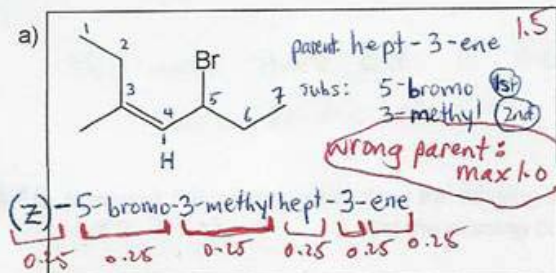 a)
1
2
3
4
5
6
7
Br
H
parent: hept-3-ene
1.5
subs: 5-bromo 1st
3-methyl 2nd
wrong parent:
max 1.0
(Z)-5-bromo-3-methylhept-3-ene
0.25 0.25 0.25 0.25 0.25 0.25